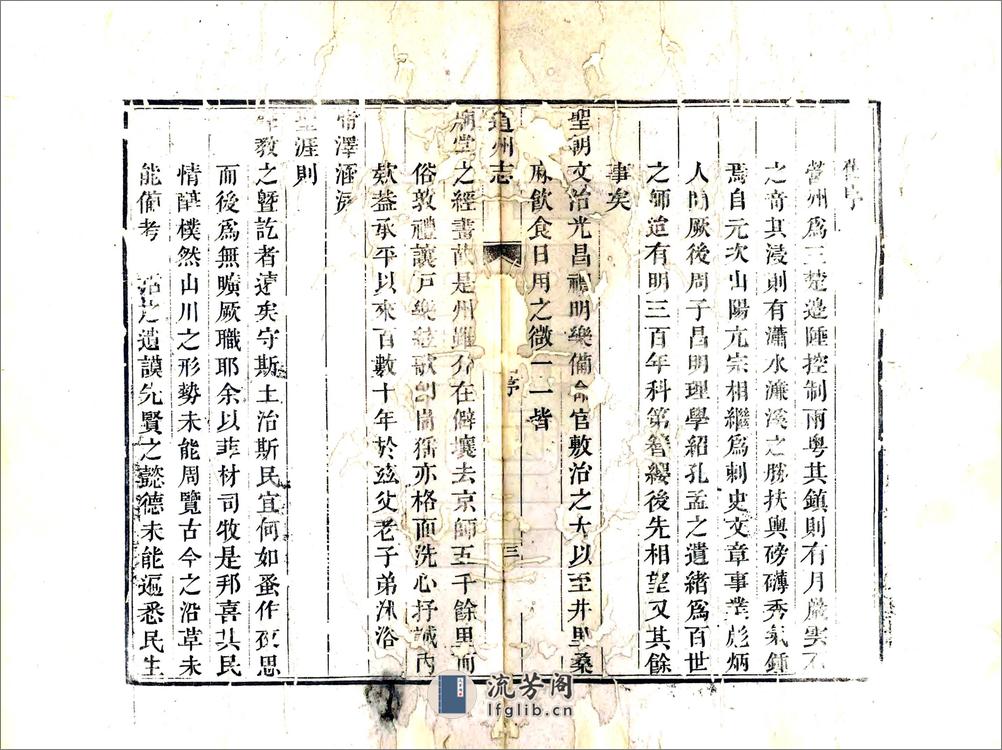 舊序
營州爲三楚邊陲控制兩粵其鎮則有月巖雲
之奇其浸則有瀟水濂溪之勝扶輿磅礴秀氣鍾
焉自元次山陽亢宗相繼爲刺史文章事業彪炳
人間厥後周子昌明理學紹孔孟之遺緒爲百世
之師逌有明三百年科第簪纓後先相望又其餘
事矣
聖朝文治光昌禮明樂備命官敷治之大以至井里桑
麻飲食日用之微一一皆
道州志
序
三
廟堂之經畫故是州雖介在僻壤去京師五千餘里而
俗敦禮讓戶樂絃歌卽峝猺亦格面洗心抒誠內
欵葢承平以來百數十年於玆父老子弟沐浴
膏澤涵濡
涯則
教之曁訖者遠矣守斯土治斯民宜何如蚤作夜思
而後爲無曠厥職耶余以菲材司牧是邦喜其民
情醇樸然山川之形勢未能周覽古今之沿革未
能備考 之遺謨先賢之懿德未能遍悉民生
流芳阁
lfglib.cn